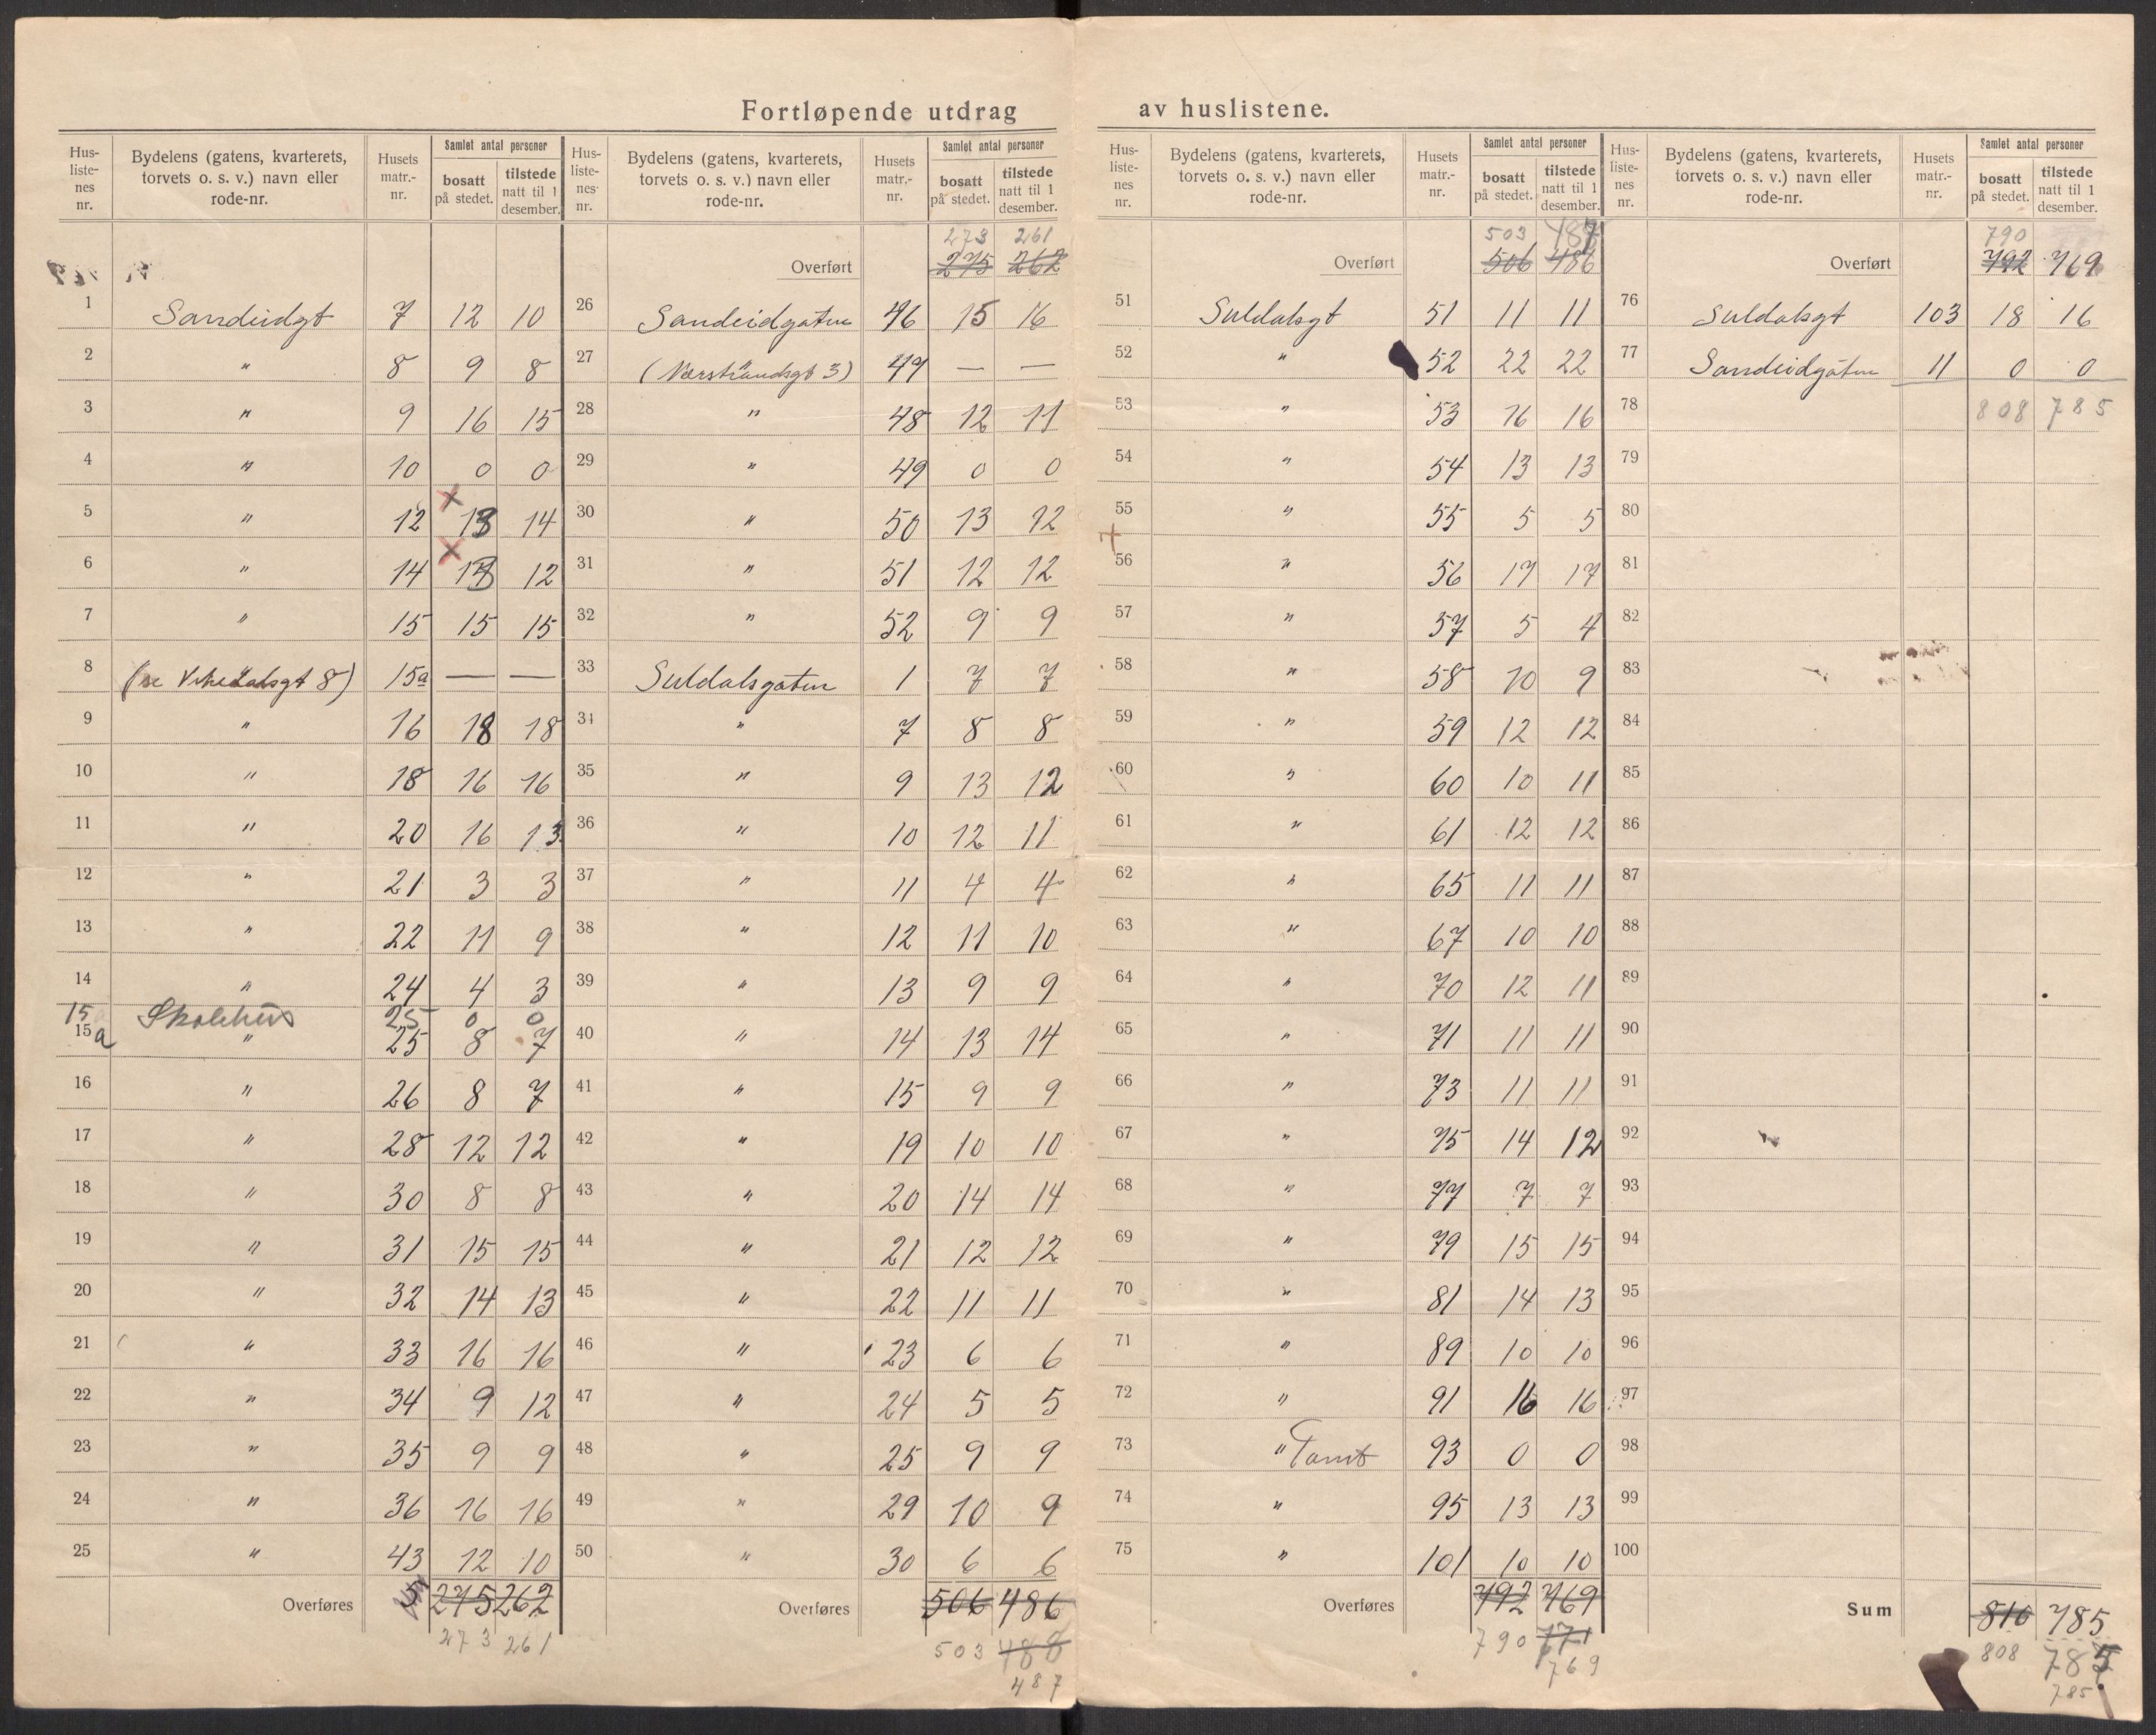 Fortløpende utdrag av huslistene.
Hus-listenes nr. Bydelens (gatens, kvarterets, torvets o. s. v.) navn eller rode-nr. Husets matr.-nr. Samlet antal personer bosatt på stedet. tilstede natt til 1 desember.
1 Sandeidgt 7 12 10
2 " 8 9 8
3 " 9 16 15
4 " 10 0 0
5 " 12 13 14
6 " 14 13 12
7 " 15 15 15
8 (se Vikedalsgt 8) 15a — —
9 " 16 18 18
10 " 18 16 16
11 " 20 16 13
12 " 21 3 3
13 " 22 11 9
14 " 24 4 3
15 Skolehus 25 0 0
15a " 25 8 7
16 " 26 8 7
17 " 28 12 12
18 " 30 8 8
19 " 31 15 15
20 " 32 14 13
21 " 33 16 16
22 " 34 9 12
23 " 35 9 9
24 " 36 16 16
25 " 43 12 10
Overføres 275 262
273 261
Hus-listenes nr. Bydelens (gatens, kvarterets, torvets o. s. v.) navn eller rode-nr. Husets matr.-nr. Samlet antal personer bosatt på stedet. tilstede natt til 1 desember.
273 261
Overført 275 262
26 Sandeidgaten 46 15 16
27 (Nærstrandsgt 3) 47 — —
28 " 48 12 11
29 " 49 0 0
30 " 50 13 12
31 " 51 12 12
32 " 52 9 9
33 Suldalsgaten 1 7 7
34 " 7 8 8
35 " 9 13 12
36 " 10 12 11
37 " 11 4 4
38 " 12 11 10
39 " 13 9 9
40 " 14 13 14
41 " 15 9 9
42 " 19 10 10
43 " 20 14 14
44 " 21 12 12
45 " 22 11 11
46 " 23 6 6
47 " 24 5 5
48 " 25 9 9
49 " 29 10 9
50 " 30 6 6
Overføres 506 486
503 488
487
Hus-listenes nr. Bydelens (gatens, kvarterets, torvets o. s. v.) navn eller rode-nr. Husets matr.-nr. Samlet antal personer bosatt på stedet. tilstede natt til 1 desember.
503 487
Overført 506 486
51 Suldalsgt 51 11 11
52 " 52 22 22
53 " 53 16 16
54 " 54 13 13
55 " 55 5 5
56 " 56 17 17
57 " 57 5 4
58 " 58 10 9
59 " 59 12 12
60 " 60 10 11
61 " 61 12 12
62 " 65 11 11
63 " 67 10 10
64 " 70 12 11
65 " 71 11 11
66 " 73 11 11
67 " 75 14 12
68 " 77 7 7
69 " 79 15 15
70 " 81 14 13
71 " 89 10 10
72 " 91 16 16
73 " Tomt 93 0 0
74 " 95 13 13
75 " 101 10 10
Overføres 792 769
790 771
769
Hus-listenes nr. Bydelens (gatens, kvarterets, torvets o. s. v.) navn eller rode-nr. Husets matr.-nr. Samlet antal personer bosatt på stedet. tilstede natt til 1 desember.
790
Overført 792 769
76 Suldalsgt 103 18 16
77 Sandeidgaten 11 0 0
78 808 785
79
80
81
82
83
84
85
86
87
88
89
90
91
92
93
94
95
96
97
98
99
100
Sum 810 785
808 785
785